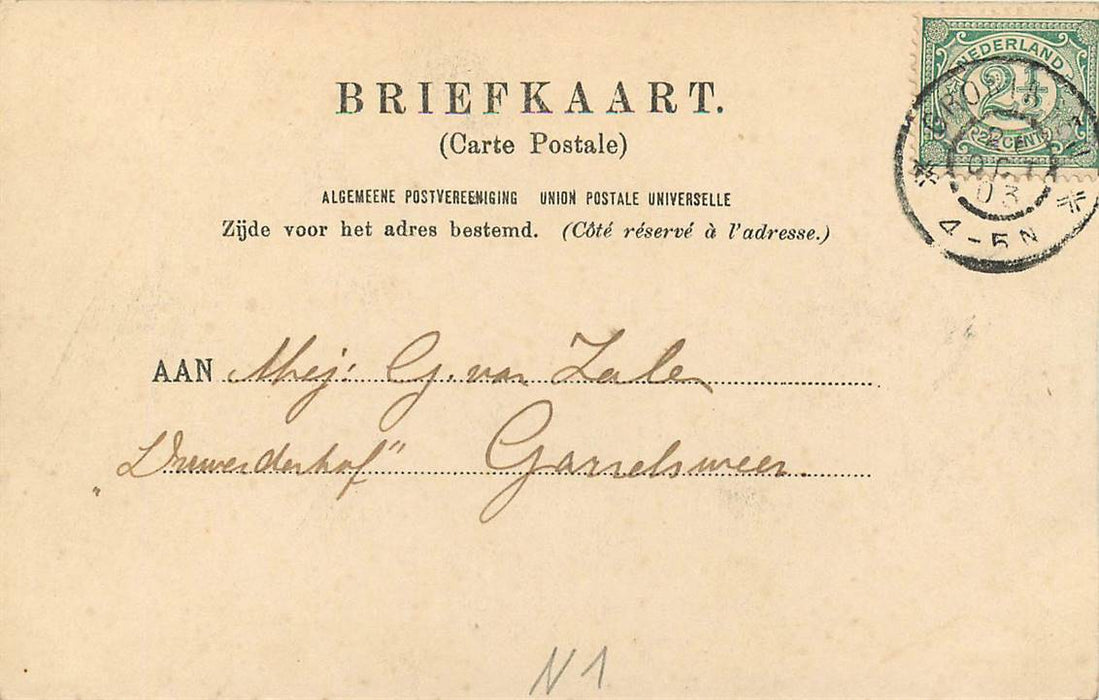 BRIEFKAART.
(Carte Postale)
ALGEMEENE POSTVEREENIGING UNION POSTALE UNIVERSELLE
Zijde voor het adres bestemd. (Côté réservé à l'adresse.)
NEDERLAND
2½
2½ CENT
OCT
03
4-5N
AAN Mej: G. van Zalen
„ Duwerderhof" Garrelsweer.
N 1